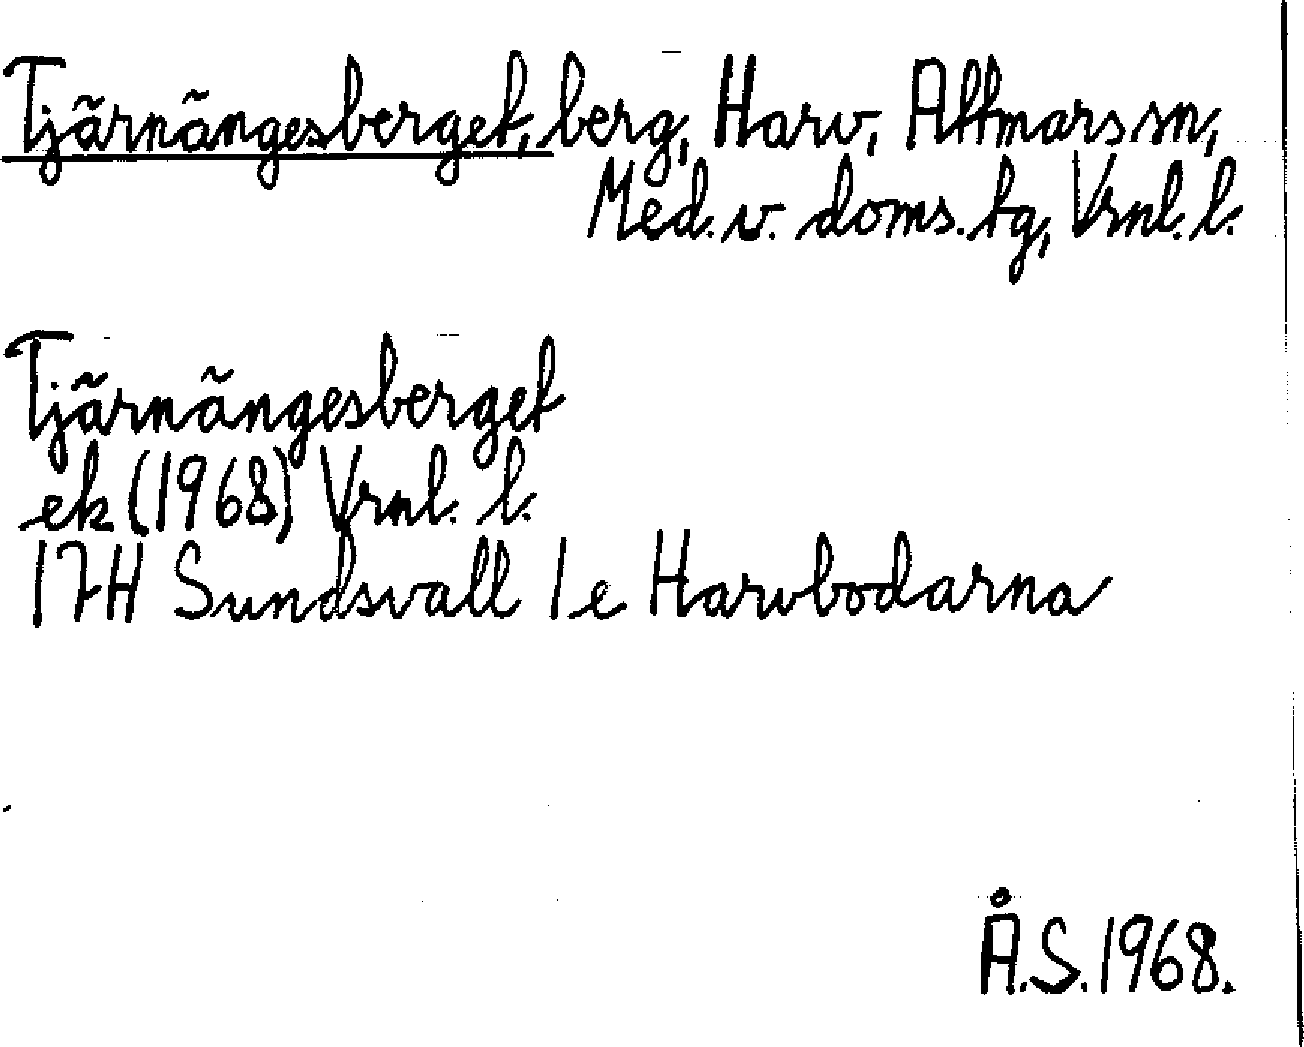 Tjärnängesberget, berg, Harv, Attmars sn,
Med. v. doms. tg, Vrnl. l.
Tjärnängesberget
ek (1968) Vrnl. l.
17H Sundsvall 1e Harvbodarna
Å.S. 1968.